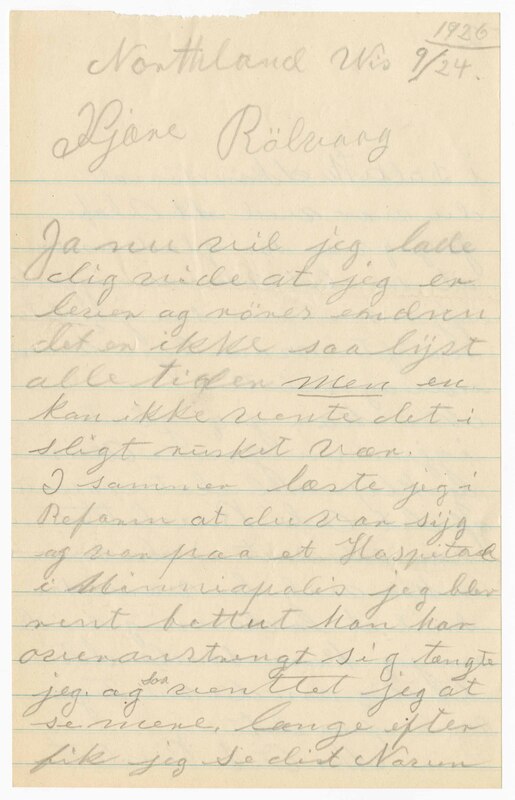 1926
Northland Wis 9/24.
Kjære Rölvaag
Ja nu vil jeg lade
dig vide at jeg er
lever ag röres endnu
det er ikke saa lyst
alle tider men en
kan ikke vente det i
sligt rusket vær.
I sammer læste jeg i
Reform at du var syg
ag var paa et Haspital
i Minniapolis jeg blev
rent battut han har
overanstrengt sig tængte
jeg. ag saa venttet jeg at
se mere. længe efter
fik jeg se det